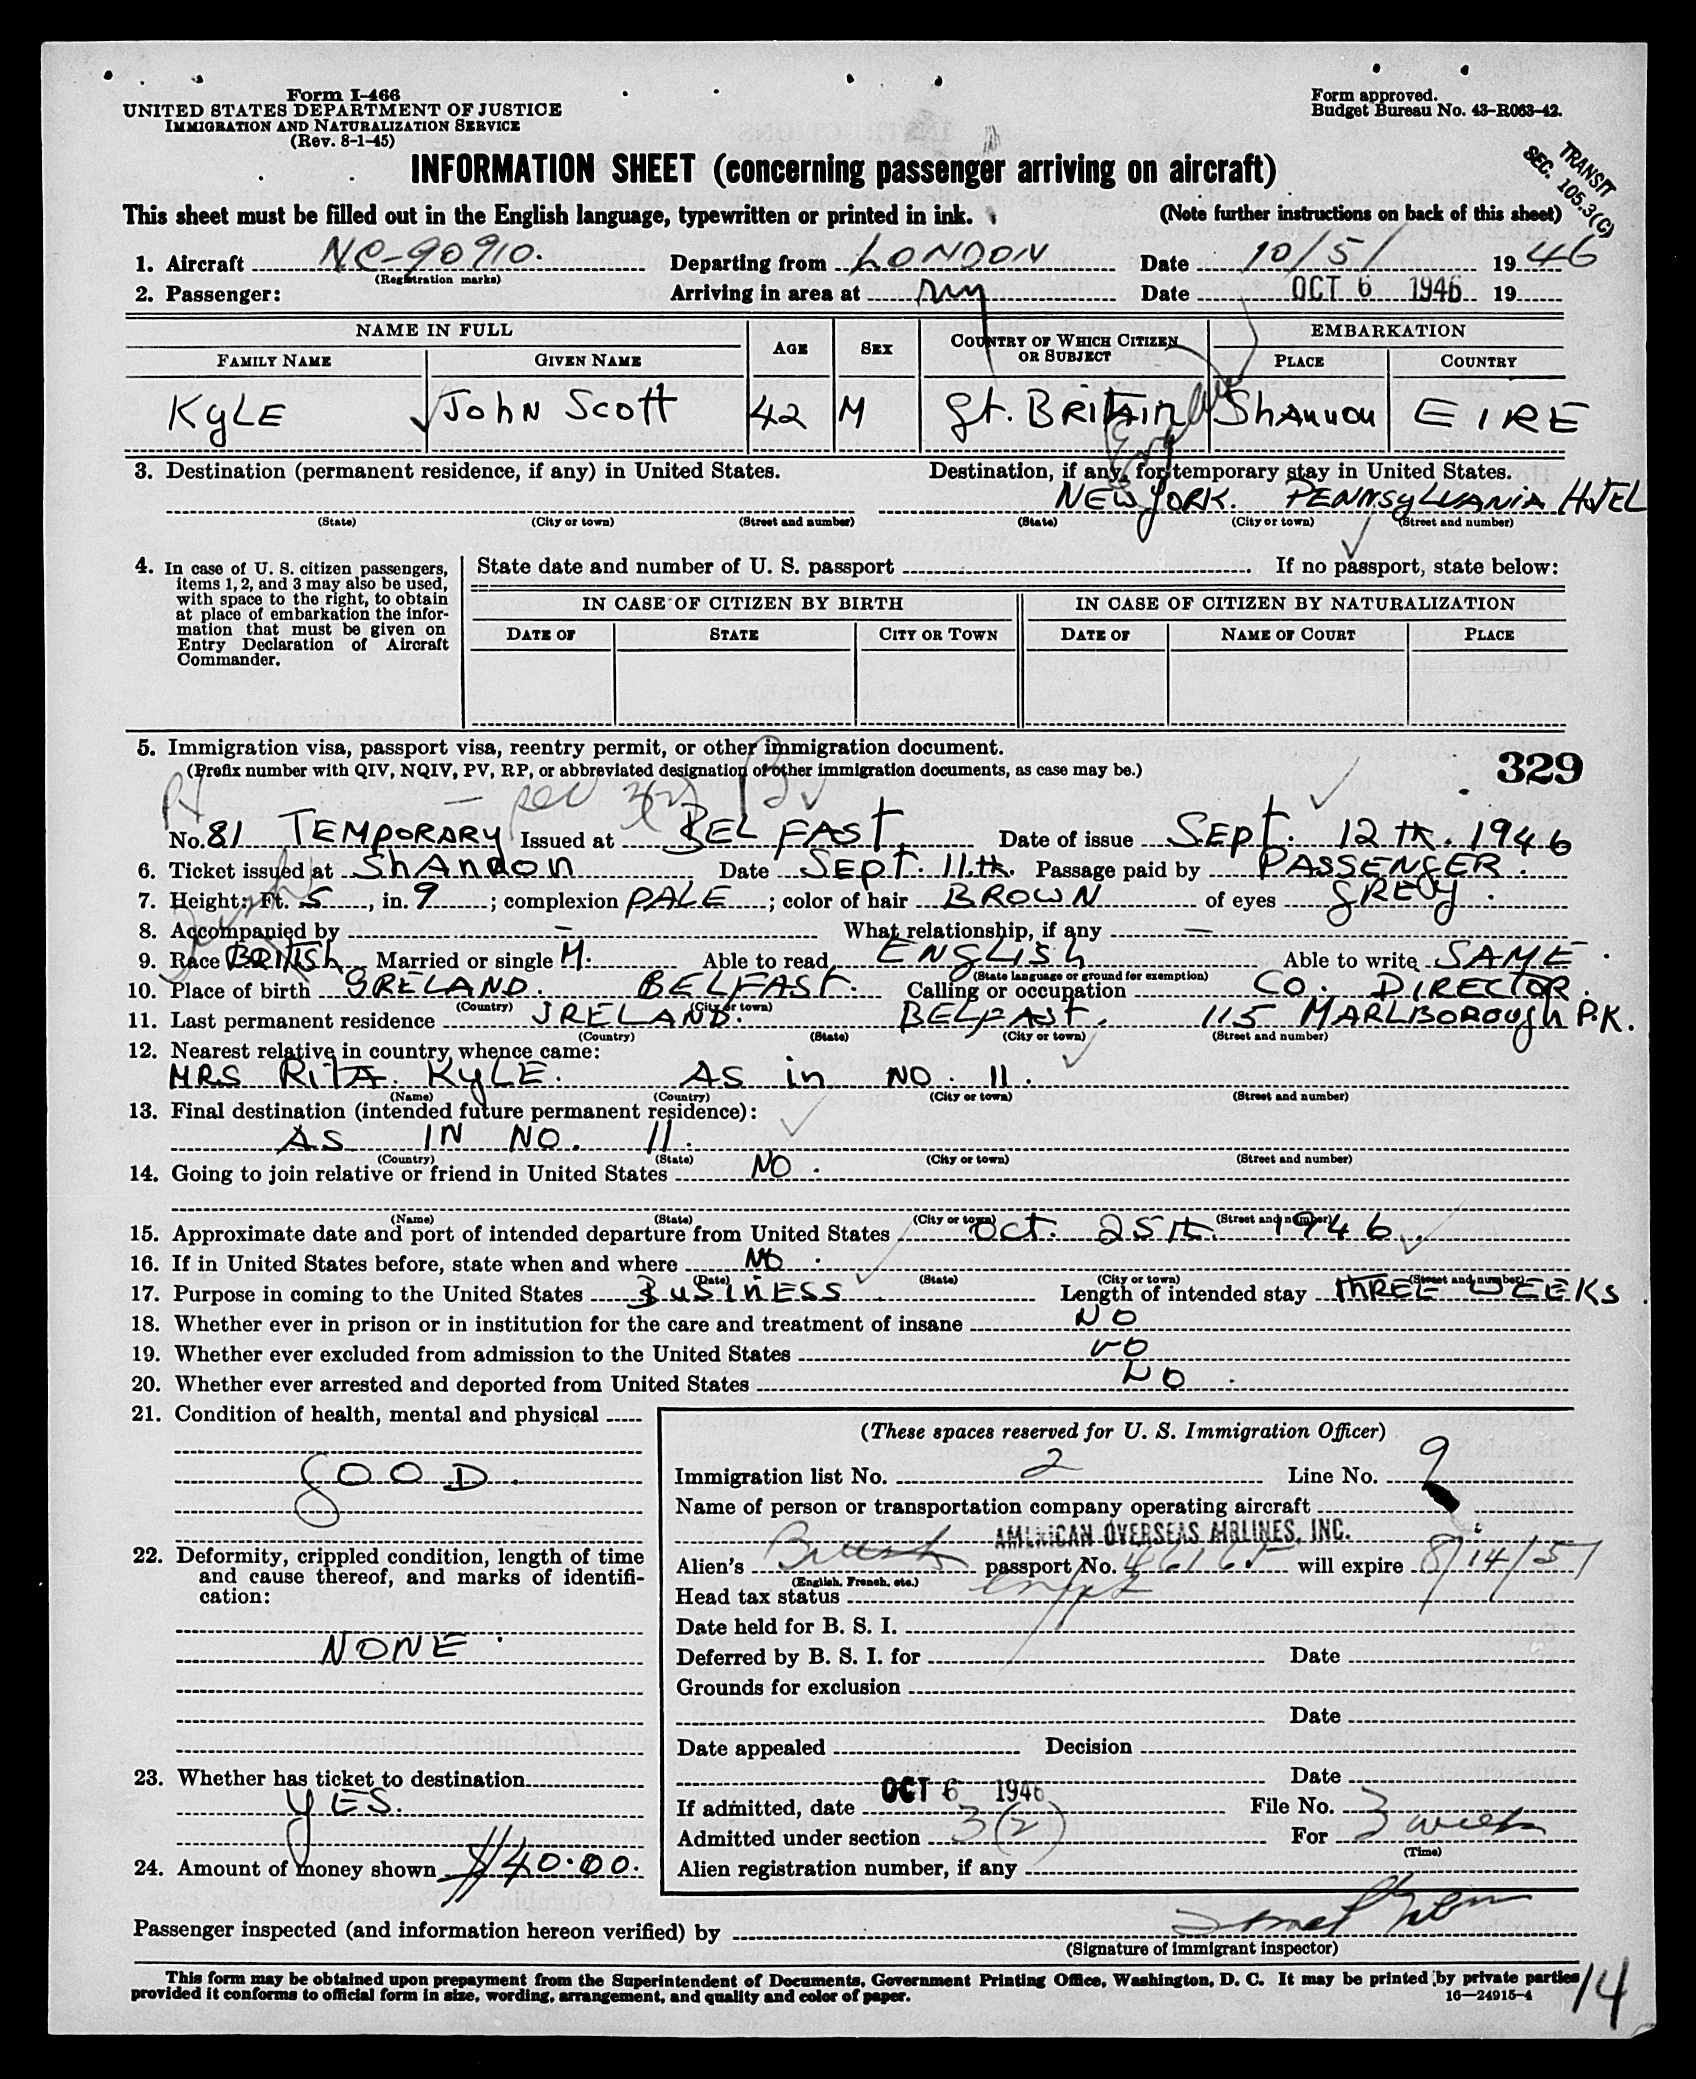 Form I-466
UNITED STATES DEPARTMENT OF JUSTICE
IMMIGRATION AND NATURALIZATION SERVICE
(Rev. 8-1-45)
Form approved.
Budget Bureau No. 43-R063-42.
TRANSIT
SEC. 105.3(C)
INFORMATION SHEET (concerning passenger arriving on aircraft)
This sheet must be filled out in the English language, typewritten or printed in ink. (Note further instructions on back of this sheet)
1. Aircraft NC-90910. Departing from LONDON Date 10/5/ 1946
(Registration marks)
2. Passenger: Arriving in area at NY Date OCT 6 1946 19
NAME IN FULL AGE SEX COUNTRY OF WHICH CITIZEN OR SUBJECT EMBARKATION
FAMILY NAME GIVEN NAME PLACE COUNTRY
KYLE JOHN SCOTT 42 M Gt. BRITAIN SHANNON EIRE
3. Destination (permanent residence, if any) in United States. Destination, if any, for temporary stay in United States.
NEW YORK. PENNSYLVANIA HOTEL
(State) (City or town) (Street and number) (State) (City or town) (Street and number)
4. In case of U. S. citizen passengers, items 1, 2, and 3 may also be used, with space to the right, to obtain at place of embarkation the information that must be given on Entry Declaration of Aircraft Commander.
State date and number of U. S. passport If no passport, state below:
IN CASE OF CITIZEN BY BIRTH IN CASE OF CITIZEN BY NATURALIZATION
DATE OF STATE CITY OR TOWN DATE OF NAME OF COURT PLACE
5. Immigration visa, passport visa, reentry permit, or other immigration document.
(Prefix number with QIV, NQIV, PV, RP, or abbreviated designation of other immigration documents, as case may be.)
329
No. 81 TEMPORARY Issued at BELFAST Date of issue SEPT. 12TH. 1946
6. Ticket issued at SHANNON Date SEPT. 11.TH. Passage paid by PASSENGER.
7. Height: Ft. 5, in. 9; complexion PALE; color of hair BROWN of eyes GREY.
8. Accompanied by — What relationship, if any —
9. Race BRITISH Married or single M. Able to read ENGLISH Able to write SAME.
(State language or ground for exemption)
10. Place of birth IRELAND. BELFAST. Calling or occupation CO. DIRECTOR.
(Country) (City or town)
11. Last permanent residence IRELAND. BELFAST. 115 MARLBOROUGH PK.
(Country) (State) (City or town) (Street and number)
12. Nearest relative in country whence came:
MRS RITA. KYLE. AS IN NO. 11.
(Name) (Country) (City or town) (Street and number)
13. Final destination (intended future permanent residence):
AS IN NO. 11.
(Country) (State) (City or town) (Street and number)
14. Going to join relative or friend in United States NO.
(Name) (State) (City or town) (Street and number)
15. Approximate date and port of intended departure from United States OCT. 25TH. 1946.
16. If in United States before, state when and where NO.
(Date) (State) (City or town) (Street and number)
17. Purpose in coming to the United States BUSINESS Length of intended stay THREE WEEKS.
18. Whether ever in prison or in institution for the care and treatment of insane NO
19. Whether ever excluded from admission to the United States NO
20. Whether ever arrested and deported from United States NO.
21. Condition of health, mental and physical
GOOD.
22. Deformity, crippled condition, length of time and cause thereof, and marks of identification:
NONE.
23. Whether has ticket to destination
YES.
24. Amount of money shown $40.00.
(These spaces reserved for U. S. Immigration Officer)
Immigration list No. 2 Line No. 9
Name of person or transportation company operating aircraft
AMERICAN OVERSEAS AIRLINES, INC.
Alien's British passport No. 46165 will expire 8/14/51
(English, French, etc.)
Head tax status
Date held for B. S. I.
Deferred by B. S. I. for Date
Grounds for exclusion
Date
Date appealed Decision
Date
If admitted, date OCT 6 1946 File No.
Admitted under section 3(2) For 3 weeks
(Time)
Alien registration number, if any
Passenger inspected (and information hereon verified) by
(Signature of immigrant inspector)
This form may be obtained upon prepayment from the Superintendent of Documents, Government Printing Office, Washington, D. C. It may be printed by private parties
provided it conforms to official form in size, wording, arrangement, and quality and color of paper.
16—24915-4
14